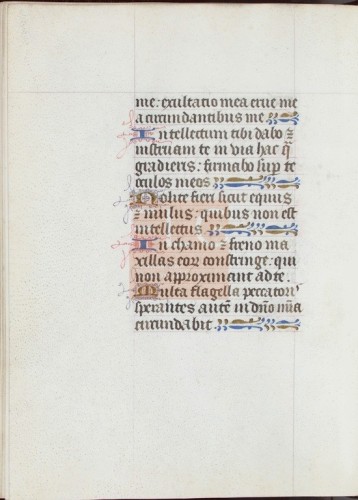 me: exultatio mea erue me
a circundantibus me
Intellectum tibi dabo ⁊
instruam te in via hac q̄
gradieris: firmabo sup̄ te
oculos meos
Nolite fieri sicut equus
⁊ mulus: quibus non est
intellectus
In chamo ⁊ freno ma
xillas eoꝝ constringe: qui
non approximant ad te.
Multa flagella peccatori'
sperantes autē in dn̄o mīa
circundabit